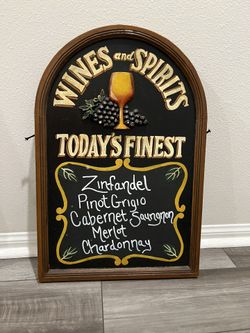 WINES and SPIRITS
TODAY'S FINEST
Zinfandel
Pinot Grigio
Cabernet Sauvignon
Merlot
Chardonnay